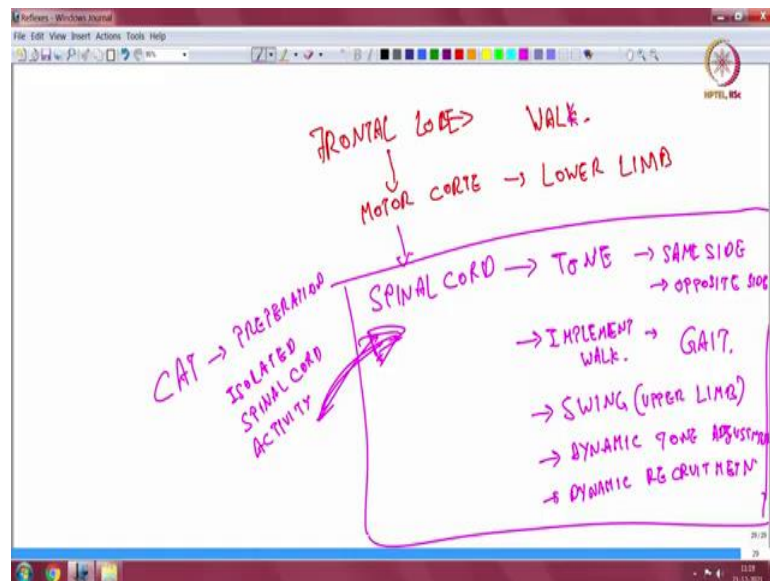 Reflexes - Windows Journal
File Edit View Insert Actions Tools Help
NPTEL, IISc
FRONTAL LOBE> WALK.
MOTOR CORTE → LOWER LIMB
SPINAL CORD → TONE → SAME SIDE
→ OPPOSITE SIDE
→ IMPLEMENT → GAIT.
WALK.
→ SWING (UPPER LIMB)
→ DYNAMIC TONE ADJUSTMEN
→ DYNAMIC RECRUITMEIN
CAT → PREPERATION
ISOLATED
SPINAL CORD
ACTIVITY
29/29
29